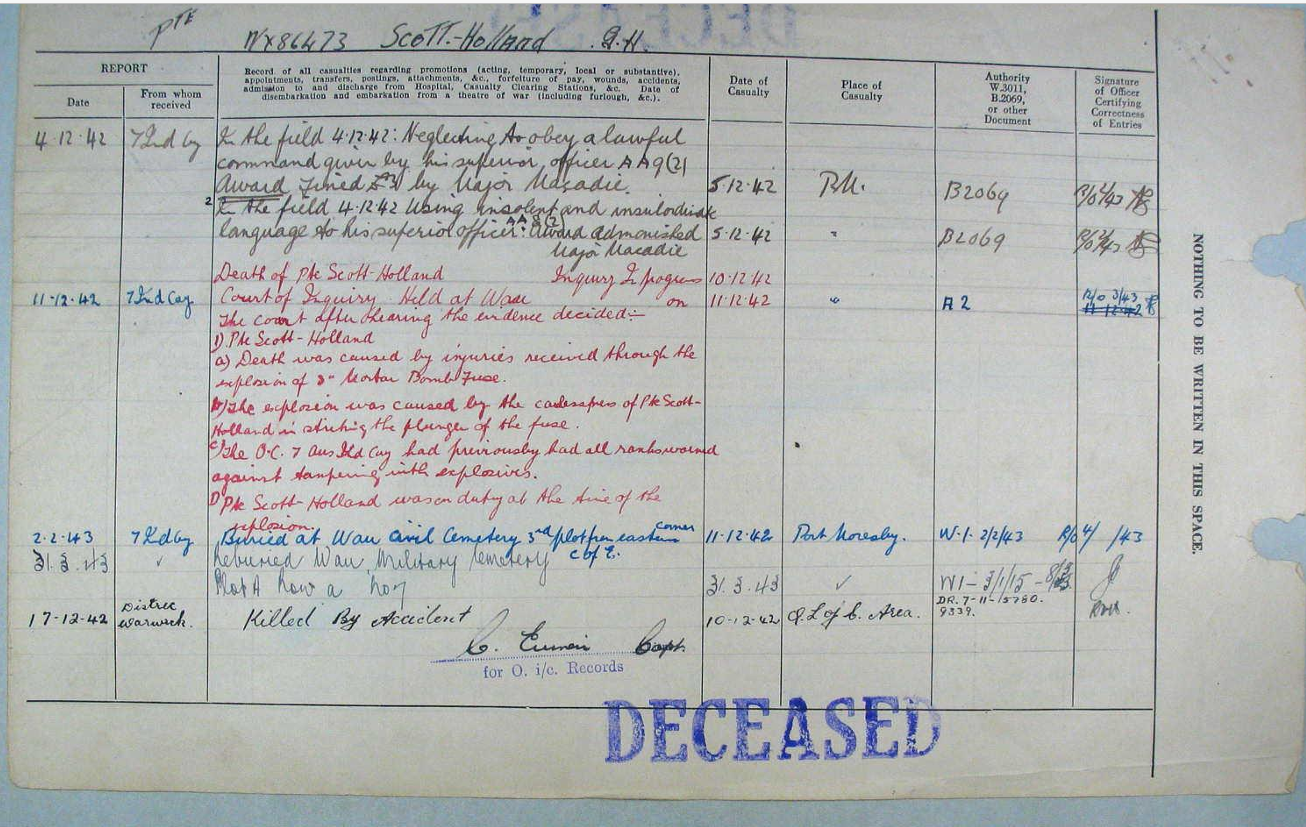 DECEASED
Pte NX86473 Scott-Holland G.H.
REPORT
Date
From whom received
Record of all casualties regarding promotions (acting, temporary, local or substantive),
appointments, transfers, postings, attachments, &c., forfeiture of pay, wounds, accidents,
admission to and discharge from Hospital, Casualty Clearing Stations, &c. Date of
disembarkation and embarkation from a theatre of war (including furlough, &c.).
Date of Casualty
Place of Casualty
Authority W.3011, B.2069, or other Document
Signature of Officer Certifying Correctness of Entries
4-12-42 7 Ind Coy In the field 4-12-42: Neglecting to obey a lawful
command given by his superior officer AA 9(2)
Award Fined by Major Macadie. 5-12-42 B2069
2 In the field 4-12-42 Using insolent and insubordinate
language to his superior officer: AA 8(2) Award admonished 5-12-42 " B2069
Major Macadie
Death of Pte Scott-Holland Inquiry In progress 10-12-42
11-12-42 7 Ind Coy Court of Inquiry Held at Wau on 11-12-42 " A2 R/O 3/43
The court after hearing the evidence decided:-
1) Pte Scott-Holland
a) Death was caused by injuries received through the
explosion of 3" Mortar Bomb Fuse.
b) The explosion was caused by the carelessness of Pte Scott-
Holland in striking the plunger of the fuse.
c) The O.C. 7 Aus Ind Coy had previously had all ranks warned
against tampering with explosives.
D) Pte Scott-Holland was on duty at the time of the
explosion.
2-2-43 7 Ind Coy Buried at Wau Civil Cemetery 3rd plot from eastern corner 11-12-42 Port Moresby. W-1-2/2/43 /43
C of E.
31.3.43 Reburied Wau Military Cemetery
Plot A Row a 31.3.43
17-12-42 Killed By Accident 10-12-42 Q.L of C. Area. DR.7-11-15780.
9339.
Capt.
for O. i/c. Records
DECEASED
NOTHING TO BE WRITTEN IN THIS SPACE.